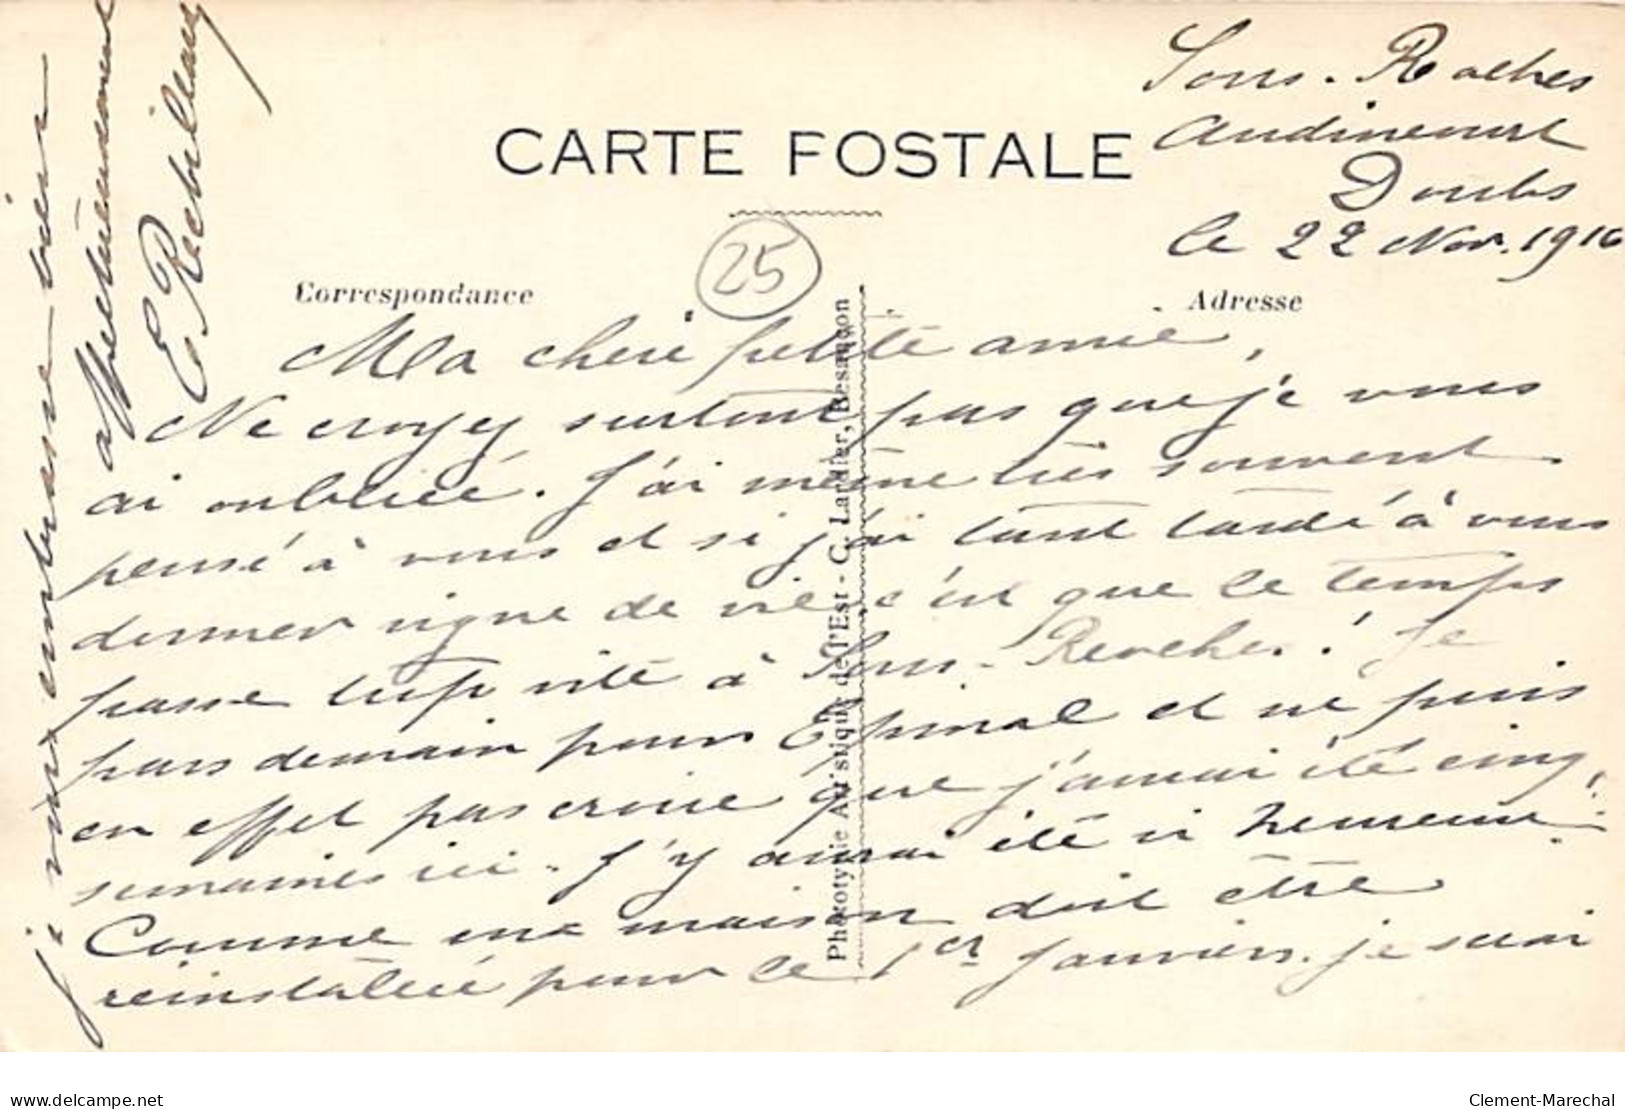 Sous-Roches
Audincourt
Doubs
le 22 Nov. 1916
CARTE POSTALE
25
Correspondance
Adresse
Ma chère petite amie,
Ne croyez surtout pas que je vous
ai oubliée. J'ai même très souvent
pensé à vous et si j'ai tant tardé à vous
donner signe de vie, c'est que le temps
passe trop vite à Sous-Roches! Je
pars demain pour Epinal et ne puis
en effet pas croire que j'aurai été cinq
semaines ici. J'y aurai été si heureuse.
Comme ma maison doit être
réinstallée pour le 1er Janvier. je serai
je vous embrasse bien
affectueusement
E. Rebilleau
Phototypie Artistique de l'Est - C. Lardier, Besançon
delcampe.net
Clement-Marechal